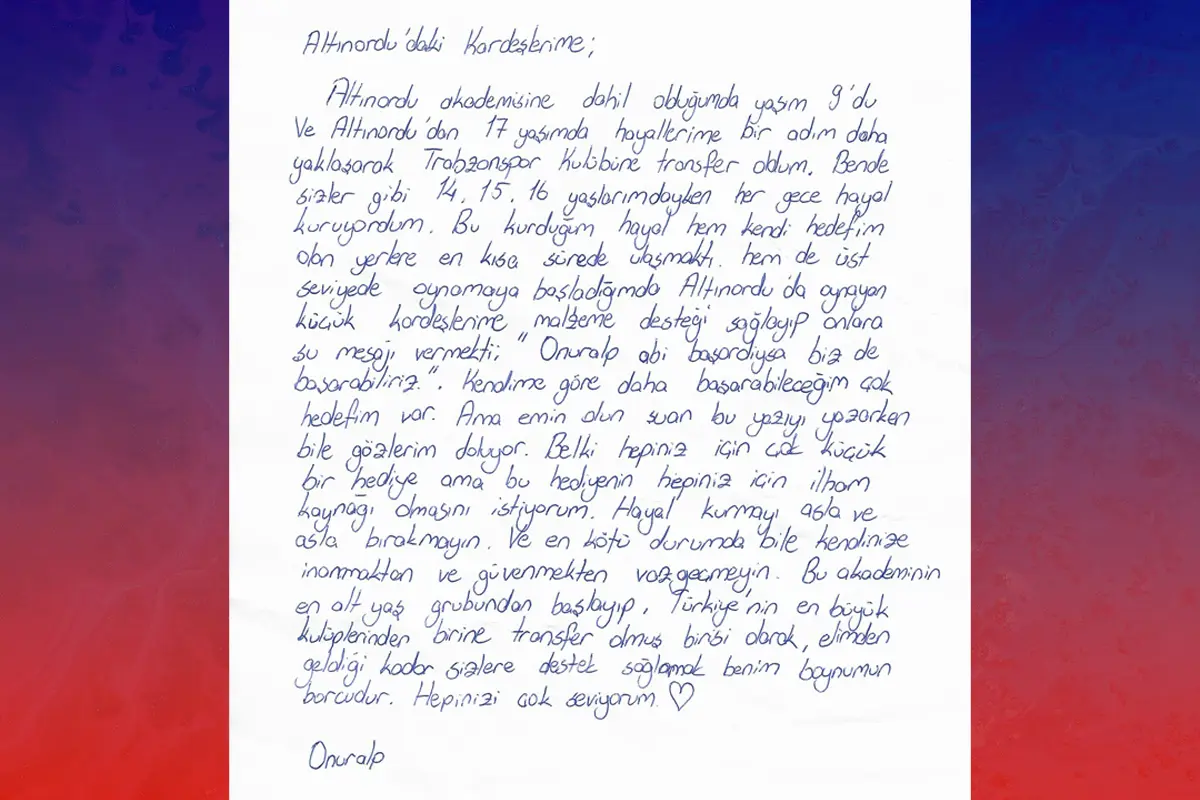 Altınordu'daki Kardeşlerime;
Altınordu akademisine dahil olduğumda yaşım 9'du
Ve Altınordu'dan 17 yaşımda hayallerime bir adım daha
yaklaşarak Trabzonspor Kulübüne transfer oldum. Bende
sizler gibi 14, 15, 16 yaşlarımdayken her gece hayal
kuruyordum. Bu kurduğum hayal hem kendi hedefim
olan yerlere en kısa sürede ulaşmaktı. hem de üst
seviyede oynamaya başladığımda Altınordu'da oynayan
küçük kardeşlerime malzeme desteği sağlayıp onlara
şu mesajı vermekti; " Onuralp abi başardıysa biz de
başarabiliriz.". Kendime göre daha başarabileceğim çok
hedefim var. Ama emin olun şuan bu yazıyı yazarken
bile gözlerim doluyor. Belki hepiniz için çok küçük
bir hediye ama bu hediyenin hepiniz için ilham
kaynağı olmasını istiyorum. Hayal kurmayı asla ve
asla bırakmayın. Ve en kötü durumda bile kendinize
inanmaktan ve güvenmekten vazgeçmeyin. Bu akademinin
en alt yaş grubundan başlayıp, Türkiye'nin en büyük
kulüplerinden birine transfer olmuş birisi olarak, elimden
geldiği kadar sizlere destek sağlamak benim boynumun
borcudur. Hepinizi çok seviyorum ♡
Onuralp